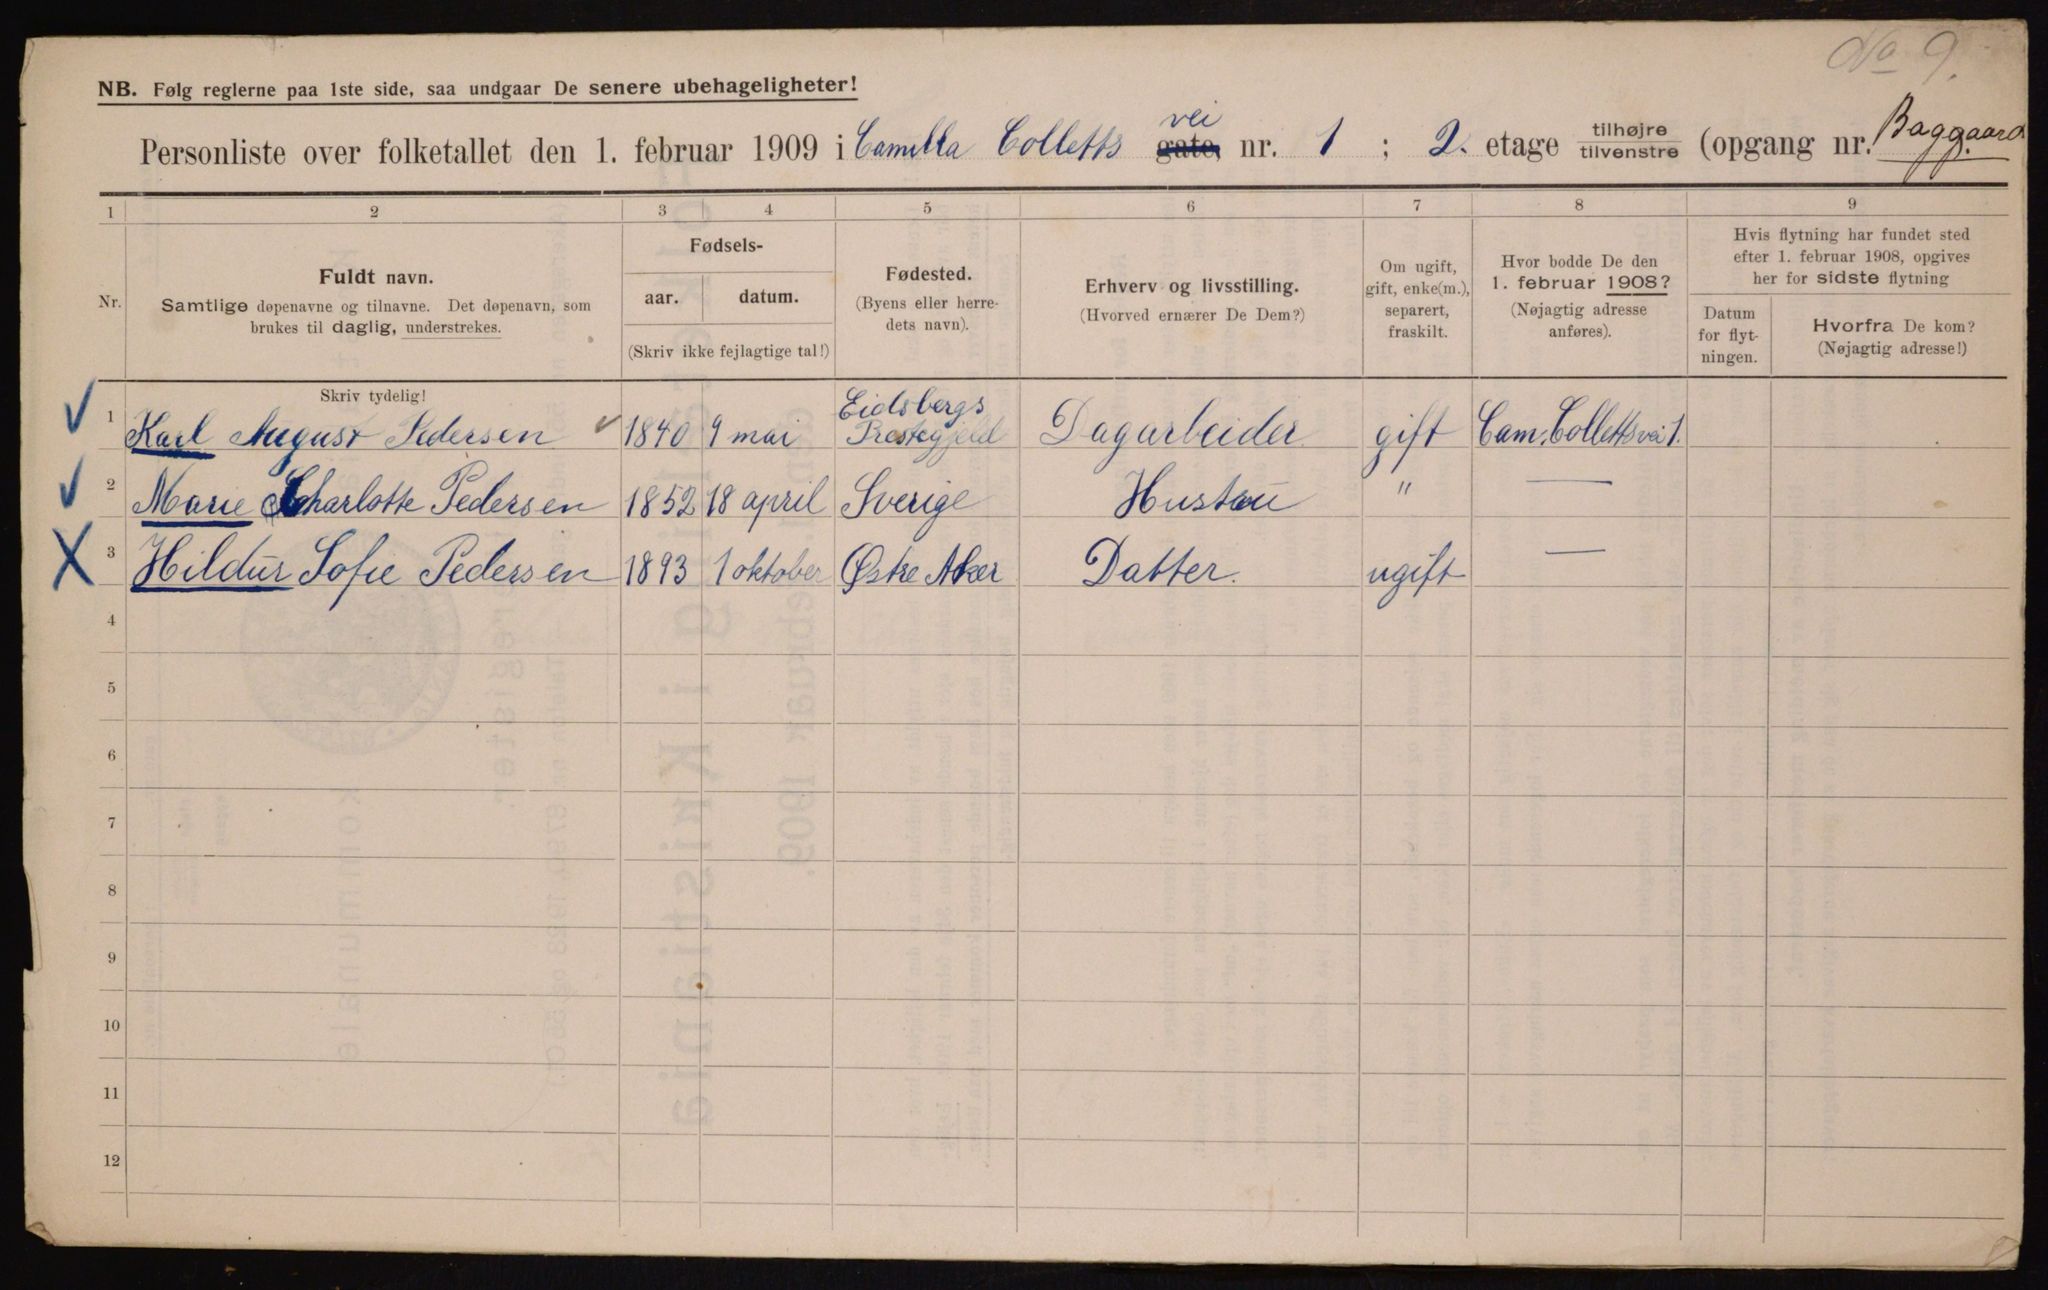 No 9.
NB. Følg reglerne paa 1ste side, saa undgaar De senere ubehageligheter!
Personliste over folketallet den 1. februar 1909 i Camilla Colletts gate, vei nr. 1 ; 2. etage tilhøjre tilvenstre (opgang nr. Baggaard
1 2 3 4 5 6 7 8 9
Nr.
Fuldt navn.
Samtlige døpenavne og tilnavne. Det døpenavn, som
brukes til daglig, understrekes.
Fødsels-
aar. datum.
(Skriv ikke fejlagtige tal!)
Fødested.
(Byens eller herre-
dets navn).
Erhverv og livsstilling.
(Hvorved ernærer De Dem?)
Om ugift,
gift, enke(m.),
separert,
fraskilt.
Hvor bodde De den
1. februar 1908?
(Nøjagtig adresse
anføres).
Hvis flytning har fundet sted
efter 1. februar 1908, opgives
her for sidste flytning
Datum
for flyt-
ningen.
Hvorfra De kom?
(Nøjagtig adresse!)
Skriv tydelig!
1 Karl August Pedersen 1840 9 mai Eidsbergs Prestegjeld Dagarbeider gift Cam. Colletts vei 1.
2 Marie Charlotte Pedersen 1852 18 april Sverige Hustru " —
3 Hildur Sofie Pedersen 1893 1 oktober Østre Aker Datter. ugift —
4
5
6
7
8
9
10
11
12